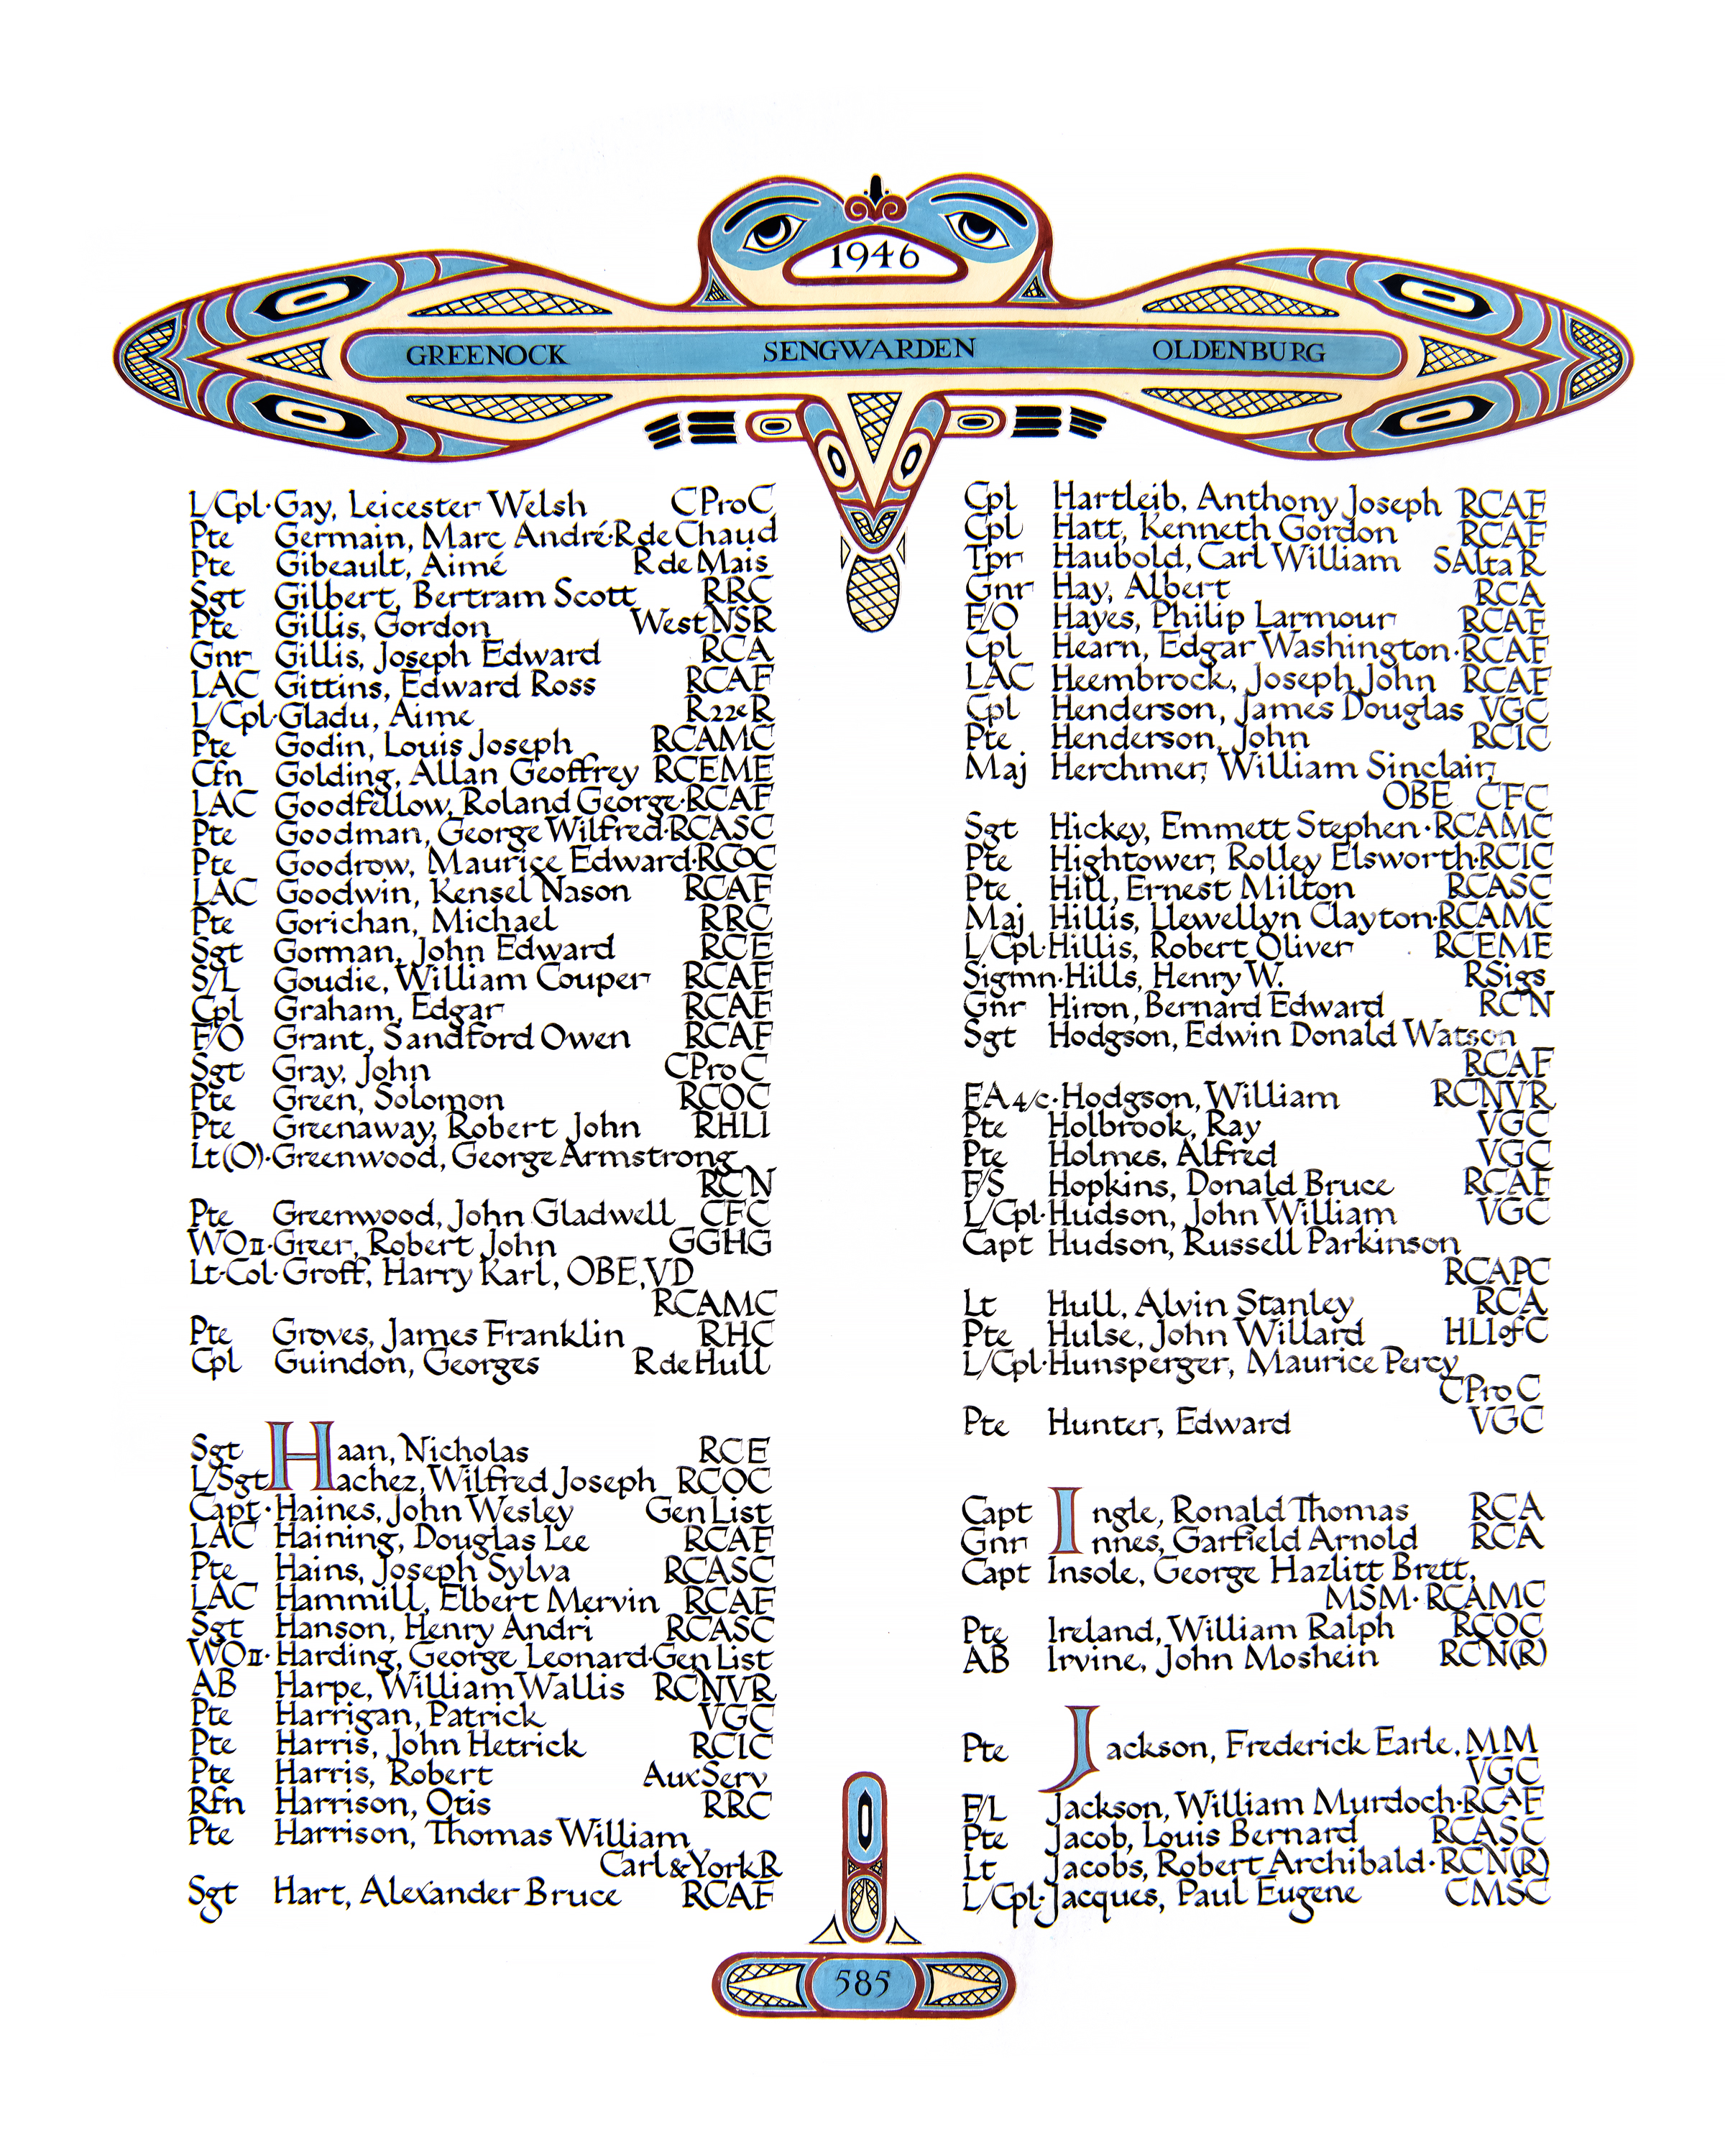 1946
GREENOCK SENGWARDEN OLDENBURG
L/Cpl·Gay, Leicester Welsh CProC
Pte Germain, Marc André·R de Chaud
Pte Gibeault, Aimé R de Mais
Sgt Gilbert, Bertram Scott RRC
Pte Gillis, Gordon West NSR
Gnr Gillis, Joseph Edward RCA
LAC Gittins, Edward Ross RCAF
L/Cpl·Gladu, Aime R22eR
Pte Godin, Louis Joseph RCAMC
Cfn Golding, Allan Geoffrey RCEME
LAC Goodfellow, Roland George·RCAF
Pte Goodman, George Wilfred·RCASC
Pte Goodrow, Maurice Edward·RCOC
LAC Goodwin, Kensel Nason RCAF
Pte Gorichan, Michael RRC
Sgt Gorman, John Edward RCE
S/L Goudie, William Couper RCAF
Cpl Graham, Edgar RCAF
F/O Grant, Sandford Owen RCAF
Sgt Gray, John CProC
Pte Green, Solomon RCOC
Pte Greenaway, Robert John RHLI
Lt(O)·Greenwood, George Armstrong
RCN
Pte Greenwood, John Gladwell CFC
WOII·Greer, Robert John GGHG
Lt-Col·Groff, Harry Karl, OBE, VD
RCAMC
Pte Groves, James Franklin RHC
Cpl Guindon, Georges R de Hull
Sgt Haan, Nicholas RCE
L/Sgt Hachez, Wilfred Joseph RCOC
Capt·Haines, John Wesley Gen List
LAC Haining, Douglas Lee RCAF
Pte Hains, Joseph Sylva RCASC
LAC Hammill, Elbert Mervin RCAF
Sgt Hanson, Henry Andri RCASC
WOII·Harding, George Leonard·Gen List
AB Harpe, William Wallis RCNVR
Pte Harrigan, Patrick VGC
Pte Harris, John Hetrick RCIC
Pte Harris, Robert Aux Serv
Rfn Harrison, Otis RRC
Pte Harrison, Thomas William
Carl & York R
Sgt Hart, Alexander Bruce RCAF
Cpl Hartleib, Anthony Joseph RCAF
Cpl Hatt, Kenneth Gordon RCAF
Tpr Haubold, Carl William SAlta R
Gnr Hay, Albert RCA
F/O Hayes, Philip Larmour RCAF
Cpl Hearn, Edgar Washington·RCAF
LAC Heembrock, Joseph John RCAF
Cpl Henderson, James Douglas VGC
Pte Henderson, John RCIC
Maj Herchmer, William Sinclair,
OBE CFC
Sgt Hickey, Emmett Stephen·RCAMC
Pte Hightower, Rolley Elsworth·RCIC
Pte Hill, Ernest Milton RCASC
Maj Hillis, Llewellyn Clayton·RCAMC
L/Cpl·Hillis, Robert Oliver RCEME
Sigmn·Hills, Henry W. RSigs
Gnr Hiron, Bernard Edward RCN
Sgt Hodgson, Edwin Donald Watson
RCAF
EA4/c·Hodgson, William RCNVR
Pte Holbrook, Ray VGC
Pte Holmes, Alfred VGC
F/S Hopkins, Donald Bruce RCAF
L/Cpl·Hudson, John William VGC
Capt Hudson, Russell Parkinson
RCAPC
Lt Hull, Alvin Stanley RCA
Pte Hulse, John Willard HLIofC
L/Cpl·Hunsperger, Maurice Percy
CProC
Pte Hunter, Edward VGC
Capt Ingle, Ronald Thomas RCA
Gnr Innes, Garfield Arnold RCA
Capt Insole, George Hazlitt Brett,
MSM·RCAMC
Pte Ireland, William Ralph RCOC
AB Irvine, John Moshein RCN(R)
Pte Jackson, Frederick Earle, MM
VGC
F/L Jackson, William Murdoch·RCAF
Pte Jacob, Louis Bernard RCASC
Lt Jacobs, Robert Archibald·RCN(R)
L/Cpl·Jacques, Paul Eugene CMSC
585